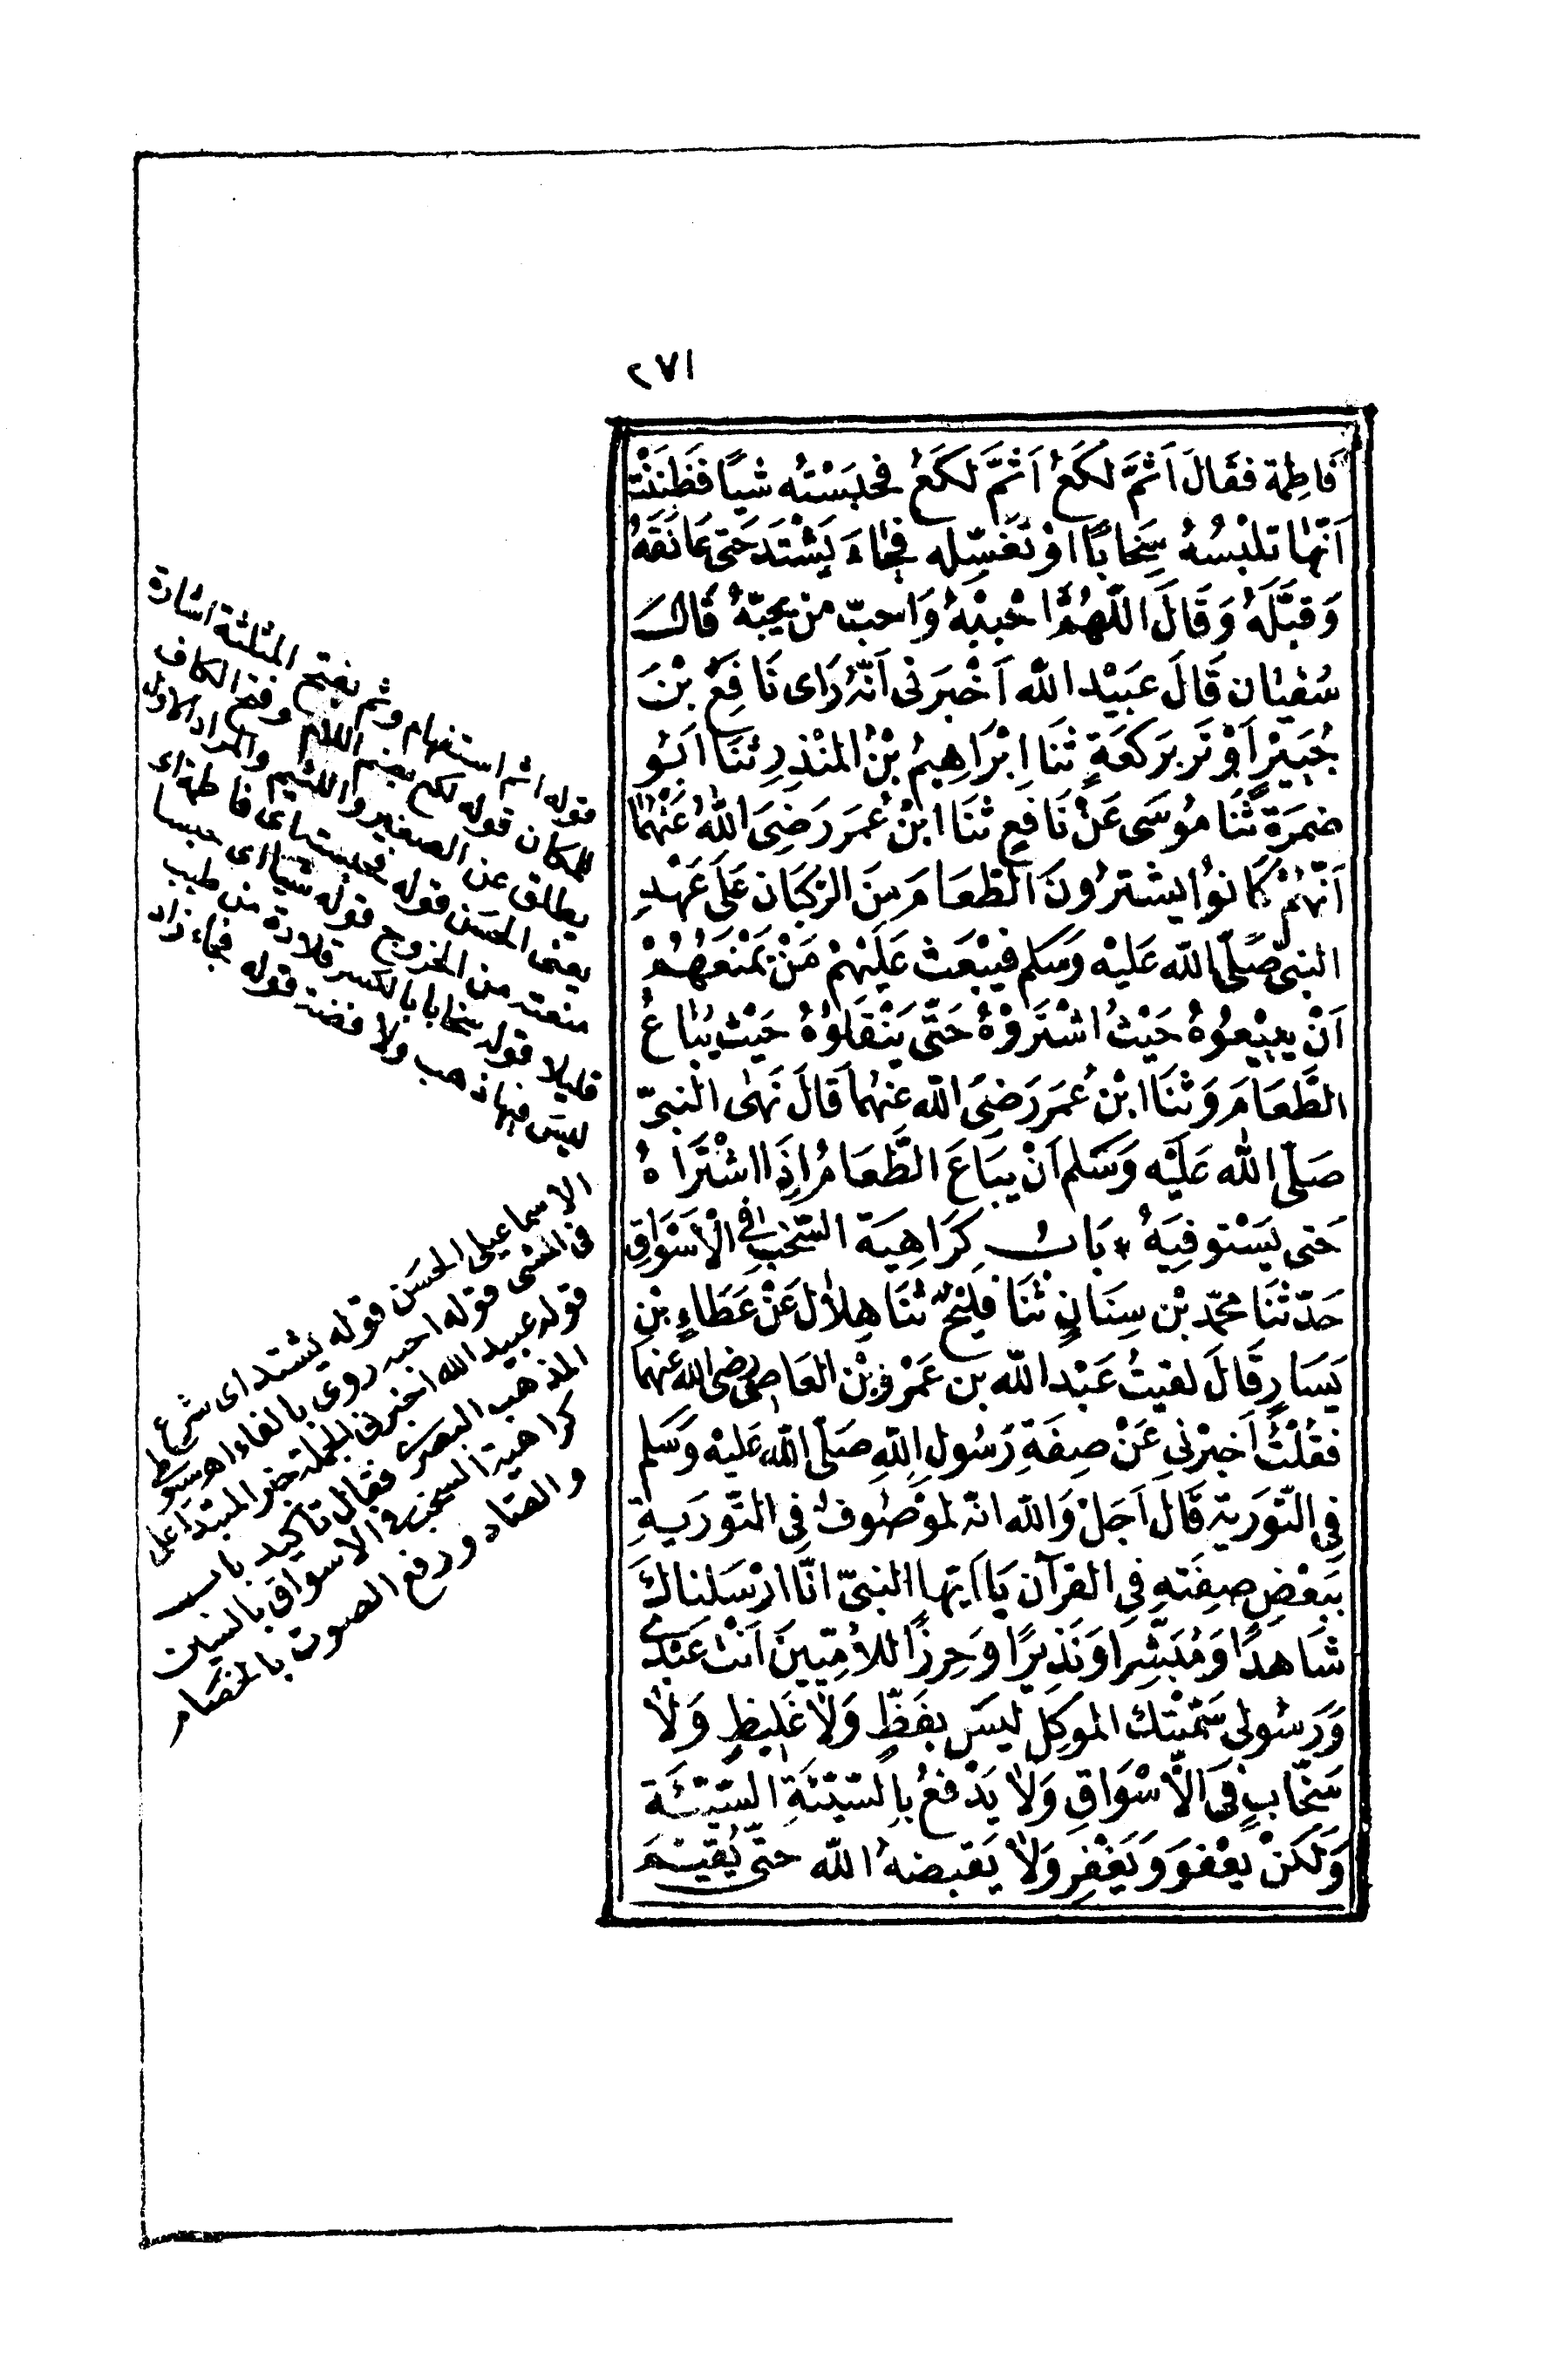 ٢٧١
فَاطِمَة فقَالَ اَثَمَّ لُكَعُ اَثَمَّ لُكَعُ فحَبَسَتْه شيًا فَظَنَنْت
اَنّهَا تلبْسُهُ سِخابًا اوْ تغَسّله فجَاءَ يَشْتَد حَتى عَانَقَهُ
وَقبَّلَهُ وَقَالَ اللّهُمَّ احْبِبْهُ وَاحبّ من يحِبّهُ قَالَ
سُفيَان قَالَ عبَيْد الله اَخْبَرَنى اَنّهُ رَاى نَافِعَ بْنَ
جُبَيْرٍ اَوْتَر برَكعَةٍ ثنَا ابْرَاهِيمُ بْنُ المنْذِرِ ثنَا ابَوُ
ضمرَة ثنَا مُوسَى عَنْ نَافِعٍ ثنَا ابْنُ عُمَرَ رَضِىَ اللهُ عَنْهُمَا
اَنّهُمْ كَانوُا يشترُونَ الطّعَامَ مِنَ الركبَان عَلَى عَهْدِ
النبى صَلّى الله عَليْه وَسَلم فيَبْعَث عَلَيْهمْ مَنْ يَمْنَعَهُمْ
اَنْ يبِيْعُوُهُ حَيْثُ اشْتَرَوْهُ حَتّى يَنْقلوُهُ حَيْث يُبَاعُ
الطَّعَامَ وَثنَا ابْنُ عُمَر رَضِىَ الله عنهُما قَالَ نَهَى النبىّ
صَلّى الله عَلَيْه وَسَلم اَنْ يبَاعَ الطَّعَامُ اِذَا اشْتَرَاهُ
حَتى يَسْتوفِيَهُ * بَابُ كِرَاهِيَة السَّخَبِ فى الْاَسْوَاقِ
حَدّثنَا محمّد بْن سِنَانٍ ثنَا فلِيْحٌ ثنَا هِلَال عَنْ عَطَاءٍ بْنِ
يَسَارٍ قَالَ لقيتُ عَبْد الله بن عَمْرِو بْن العَاصِى رضى الله عنهما
فقُلْتُ اَخبِرْنِى عَنْ صِفَةِ رَسُولِ اللهِ صَلّى الله عَليْه وَسَلم
فِى التّوَرَية قَالَ اَجَلْ وَالله انّه لموْصُوفٌ فِى التّورَيةِ
ببَعْضِ صِفَتهِ فِى القرْآن يَا اَيّها النبىّ انّا ارْسَلناكَ
شَاهدًا وَمُبَشِّرا وَنَذِيرًا وَحِرزًا للاُمّيّينَ اَنْتَ عَبْدِى
وَرَسُولى سَمّيْتك الموكل ليسَ بفَظّ وَلَا غَليظٍ وَلَا
سَخّابٍ فى الْاَسْوَاقِ وَلَا يَدْفَعُ بالسّيّئَةِ السّيّئَة
وَلَكنْ يعْفوَ وَيَغْفِر وَلَا يَقبضهُ الله حتّى يُقيْمَ
قوله اثم استفهام وثم بفتح المثلثة اشارة
للمكان قوله لكع بضم اللام وفتح الكاف
يطلق عن الصغير واللئيم والمراد الاول
يعنى الحسَن قوله فحبسته اى فاطمة اى
منعته من الخروج قوله شيا اى حبسا
قليلا قوله سخابا بالكسر قلادة من طيب
ليسَ فيها ذهب ولا فضة قوله فجاء زاد
الاسماعيلى الحسَن قوله يشتد اى يسرع
فى المشى قوله احبه روى بالفاء
قوله عبيد الله اخبرنى الجملة خبر المبتدا على
المذهب البصرى فقال تاكيد باب
كراهية السخب فى الاسواق بالسين
والصاد ورفع الصوت بالخصَام